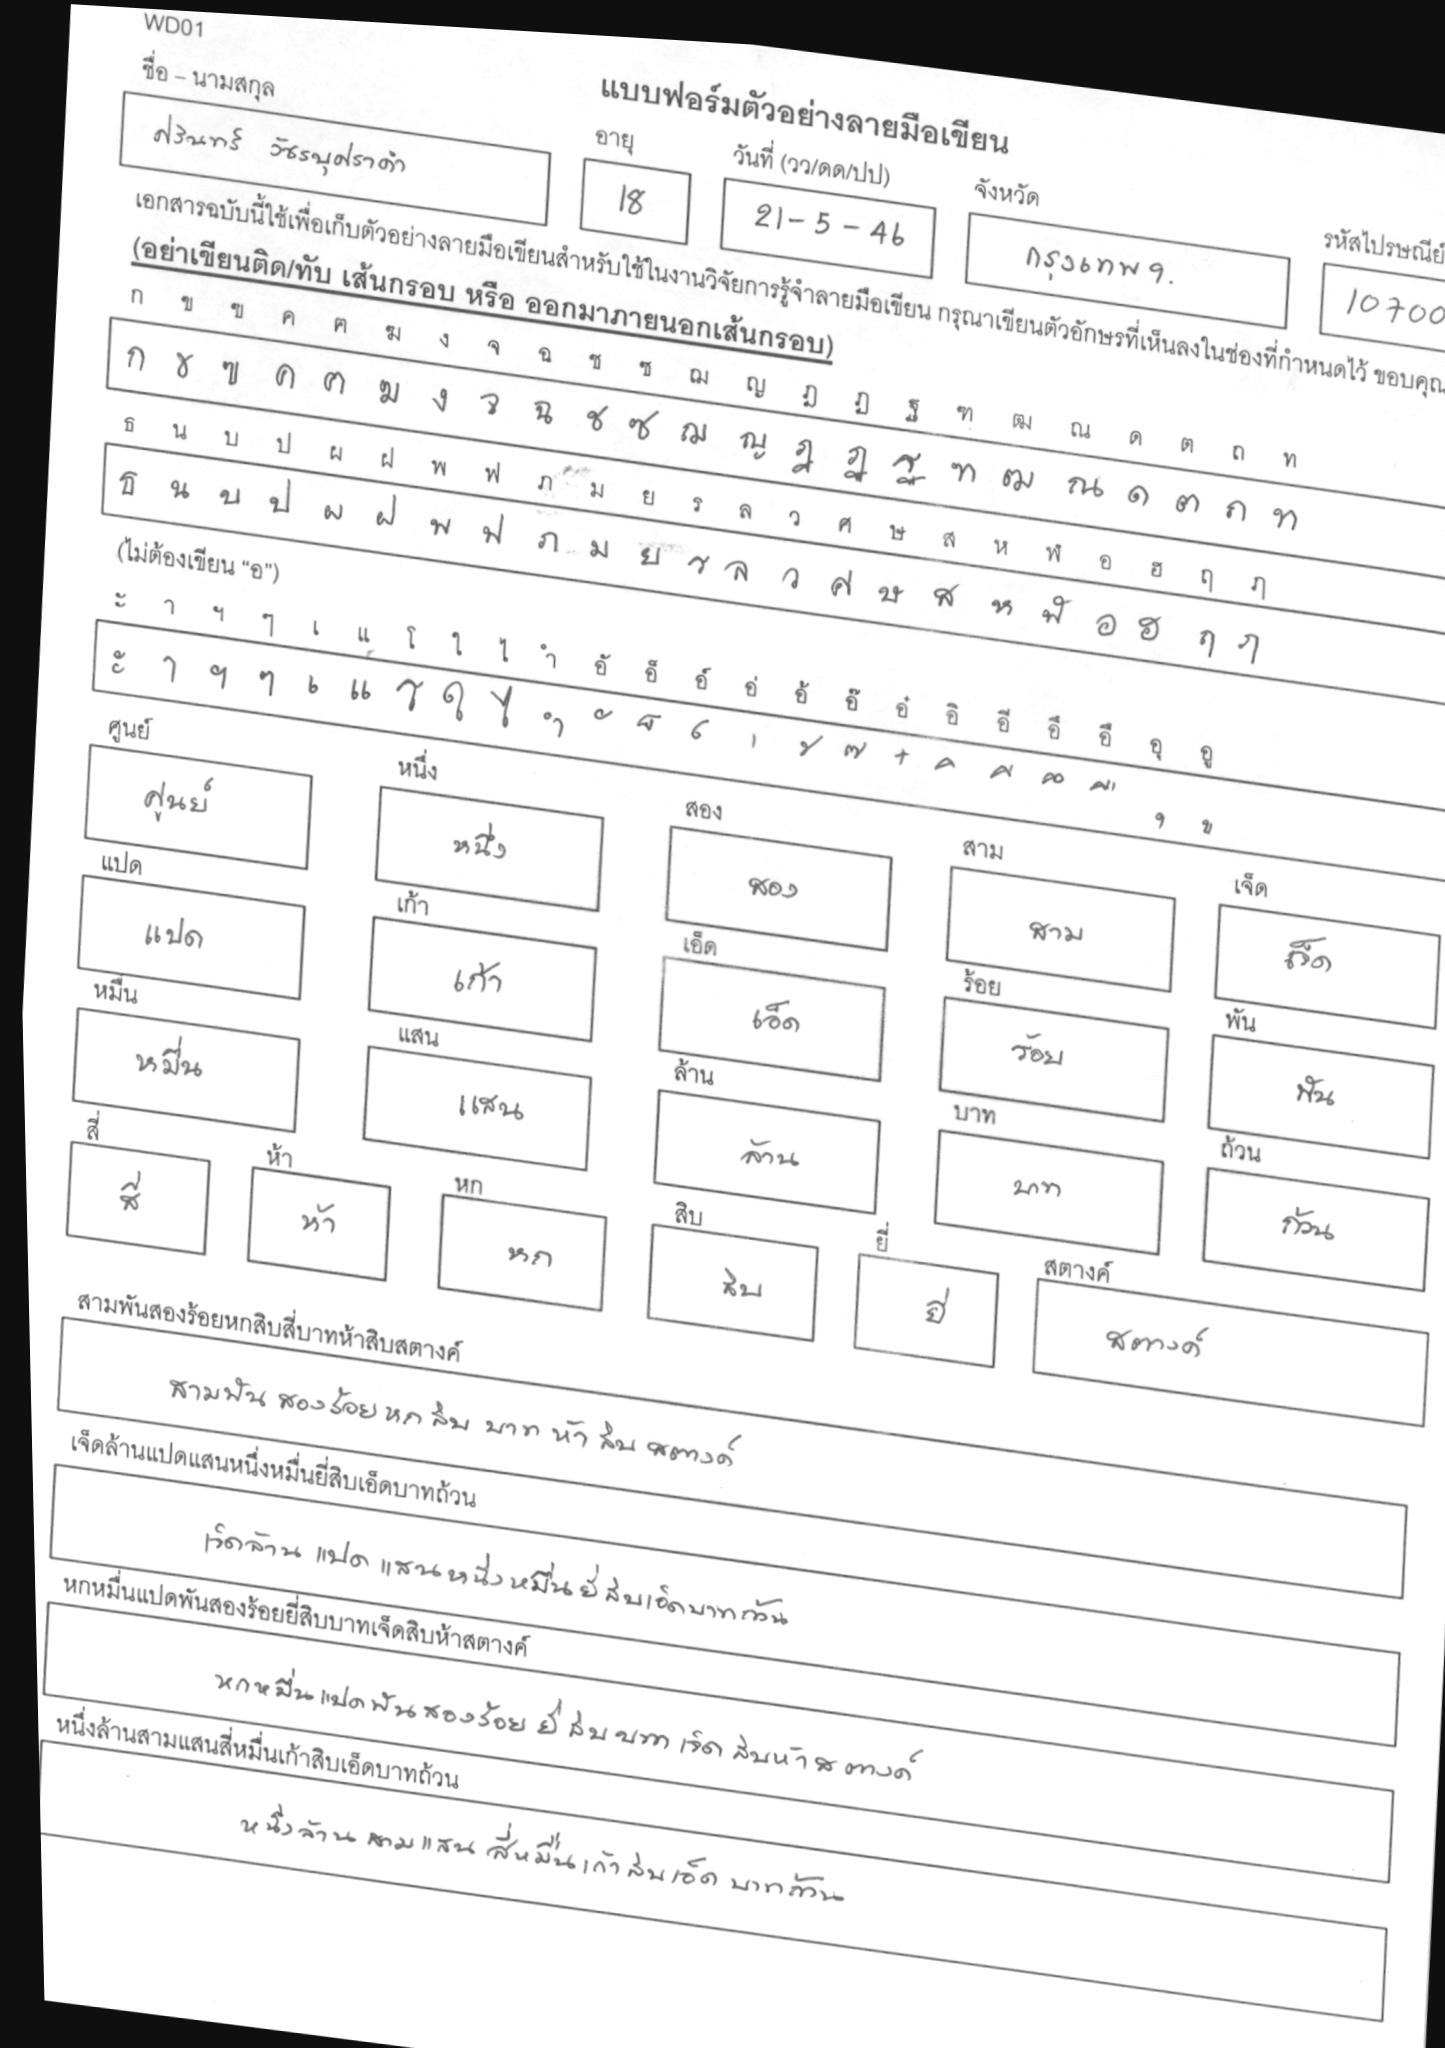 WD01
แบบฟอร์มตัวอย่างลายมือเขียน
ชื่อ – นามสกุล อายุ วันที่ (วว/ดด/ปป) จังหวัด รหัสไปรษณีย์
ศรินทร์ 18 21-5-46 กรุงเทพฯ. 10700
เอกสารฉบับนี้ใช้เพื่อเก็บตัวอย่างลายมือเขียนสำหรับใช้ในงานวิจัยการรู้จำลายมือเขียน กรุณาเขียนตัวอักษรที่เห็นลงในช่องที่กำหนดไว้ ขอบคุณ
(อย่าเขียนติด/ทับ เส้นกรอบ หรือ ออกมาภายนอกเส้นกรอบ)
ก ข ฃ ค ฅ ฆ ง จ ฉ ช ซ ฌ ญ ฎ ฏ ฐ ฑ ฒ ณ ด ต ถ ท
ก ข ฃ ค ฅ ฆ ง จ ฉ ช ซ ฌ ญ ฎ ฏ ฐ ฑ ฒ ณ ด ต ถ ท
ธ น บ ป ผ ฝ พ ฟ ภ ม ย ร ล ว ศ ษ ส ห ฬ อ ฮ ฤ ฦ
ธ น บ ป ผ ฝ พ ฟ ภ ม ย ร ล ว ศ ษ ส ห ฬ อ ฮ ฤ ฦ
(ไม่ต้องเขียน “อ”)
ะ า ฯ ๆ เ แ โ ใ ไ ำ อั อ็ อ์ อ่ อ้ อ๊ อ๋ อิ อี อึ อื อุ อู
ะ า ฯ ๆ เ แ โ ใ ไ ำ ั ็ ์ ่ ้ ๊ ๋ ิ ี ึ ื ุ ู
ศูนย์ หนึ่ง สอง สาม เจ็ด
ศูนย์ หนึ่ง สอง สาม เจ็ด
แปด เก้า เอ็ด ร้อย พัน
แปด เก้า เอ็ด ร้อย พัน
หมื่น แสน ล้าน บาท ถ้วน
หมื่น แสน ล้าน บาท ถ้วน
สี่ ห้า หก สิบ ยี่ สตางค์
สี่ ห้า หก สิบ ยี่ สตางค์
สามพันสองร้อยหกสิบสี่บาทห้าสิบสตางค์
สามพัน สองร้อยหก สิบ บาท ห้า สิบ สตางค์
เจ็ดล้านแปดแสนหนึ่งหมื่นยี่สิบเอ็ดบาทถ้วน
เจ็ดล้าน แปด แสนหนึ่งหมื่น ยี่ สิบเอ็ดบาทถ้วน
หกหมื่นแปดพันสองร้อยยี่สิบบาทเจ็ดสิบห้าสตางค์
หกหมื่นแปดพัน สองร้อย ยี่ สิบ บาท เจ็ด สิบห้าสตางค์
หนึ่งล้านสามแสนสี่หมื่นเก้าสิบเอ็ดบาทถ้วน
หนึ่งล้าน สามแสน สี่หมื่นเก้าสิบเอ็ด บาทถ้วน